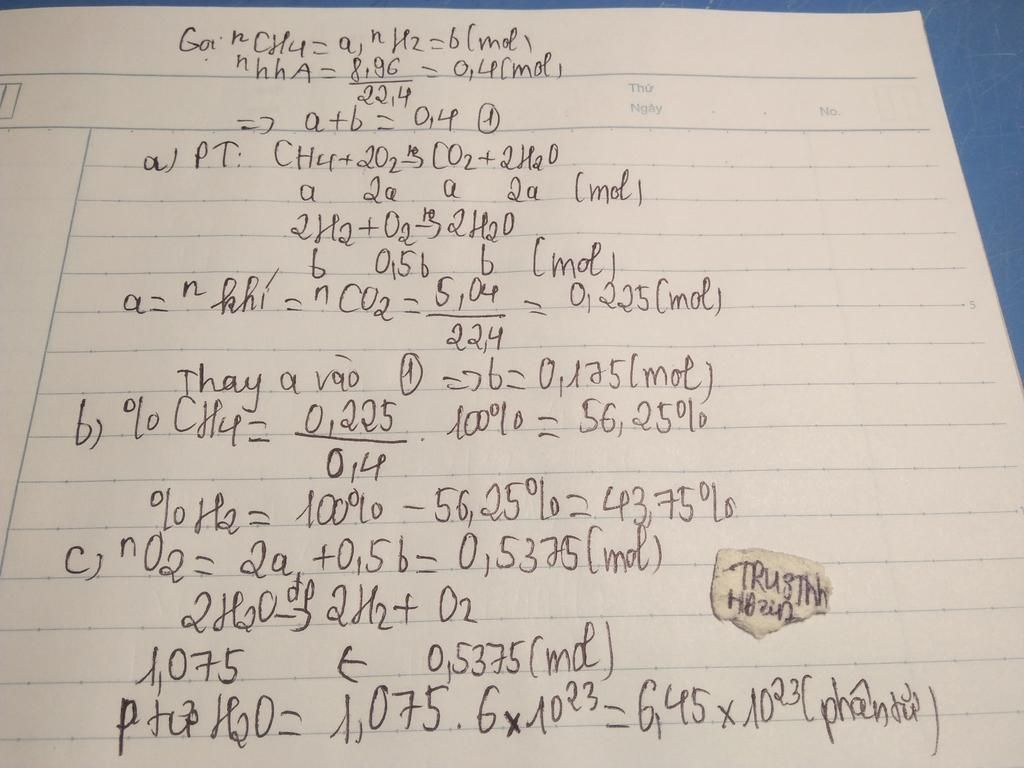 Gọi nCH4 = a, nH2 = b (mol)
nhhA = 8,96/22,4 = 0,4 (mol)
Thứ
Ngày
No.
=> a + b = 0,4 ①
a) PT: CH4 + 2O2 -to-> CO2 + 2H2O
a 2a a 2a (mol)
2H2 + O2 -to-> 2H2O
b 0,5b b (mol)
a = n khí = nCO2 = 5,04/22,4 = 0,225 (mol)
Thay a vào ① => b = 0,175 (mol)
b) %CH4 = 0,225/0,4 . 100% = 56,25%
%H2 = 100% - 56,25% = 43,75%
c) nO2 = 2a + 0,5b = 0,5375 (mol)
2H2O -đp-> 2H2 + O2
1,075 ← 0,5375 (mol)
p tử H2O = 1,075 . 6 x 10^23 = 6,45 x 10^23 (phân tử)